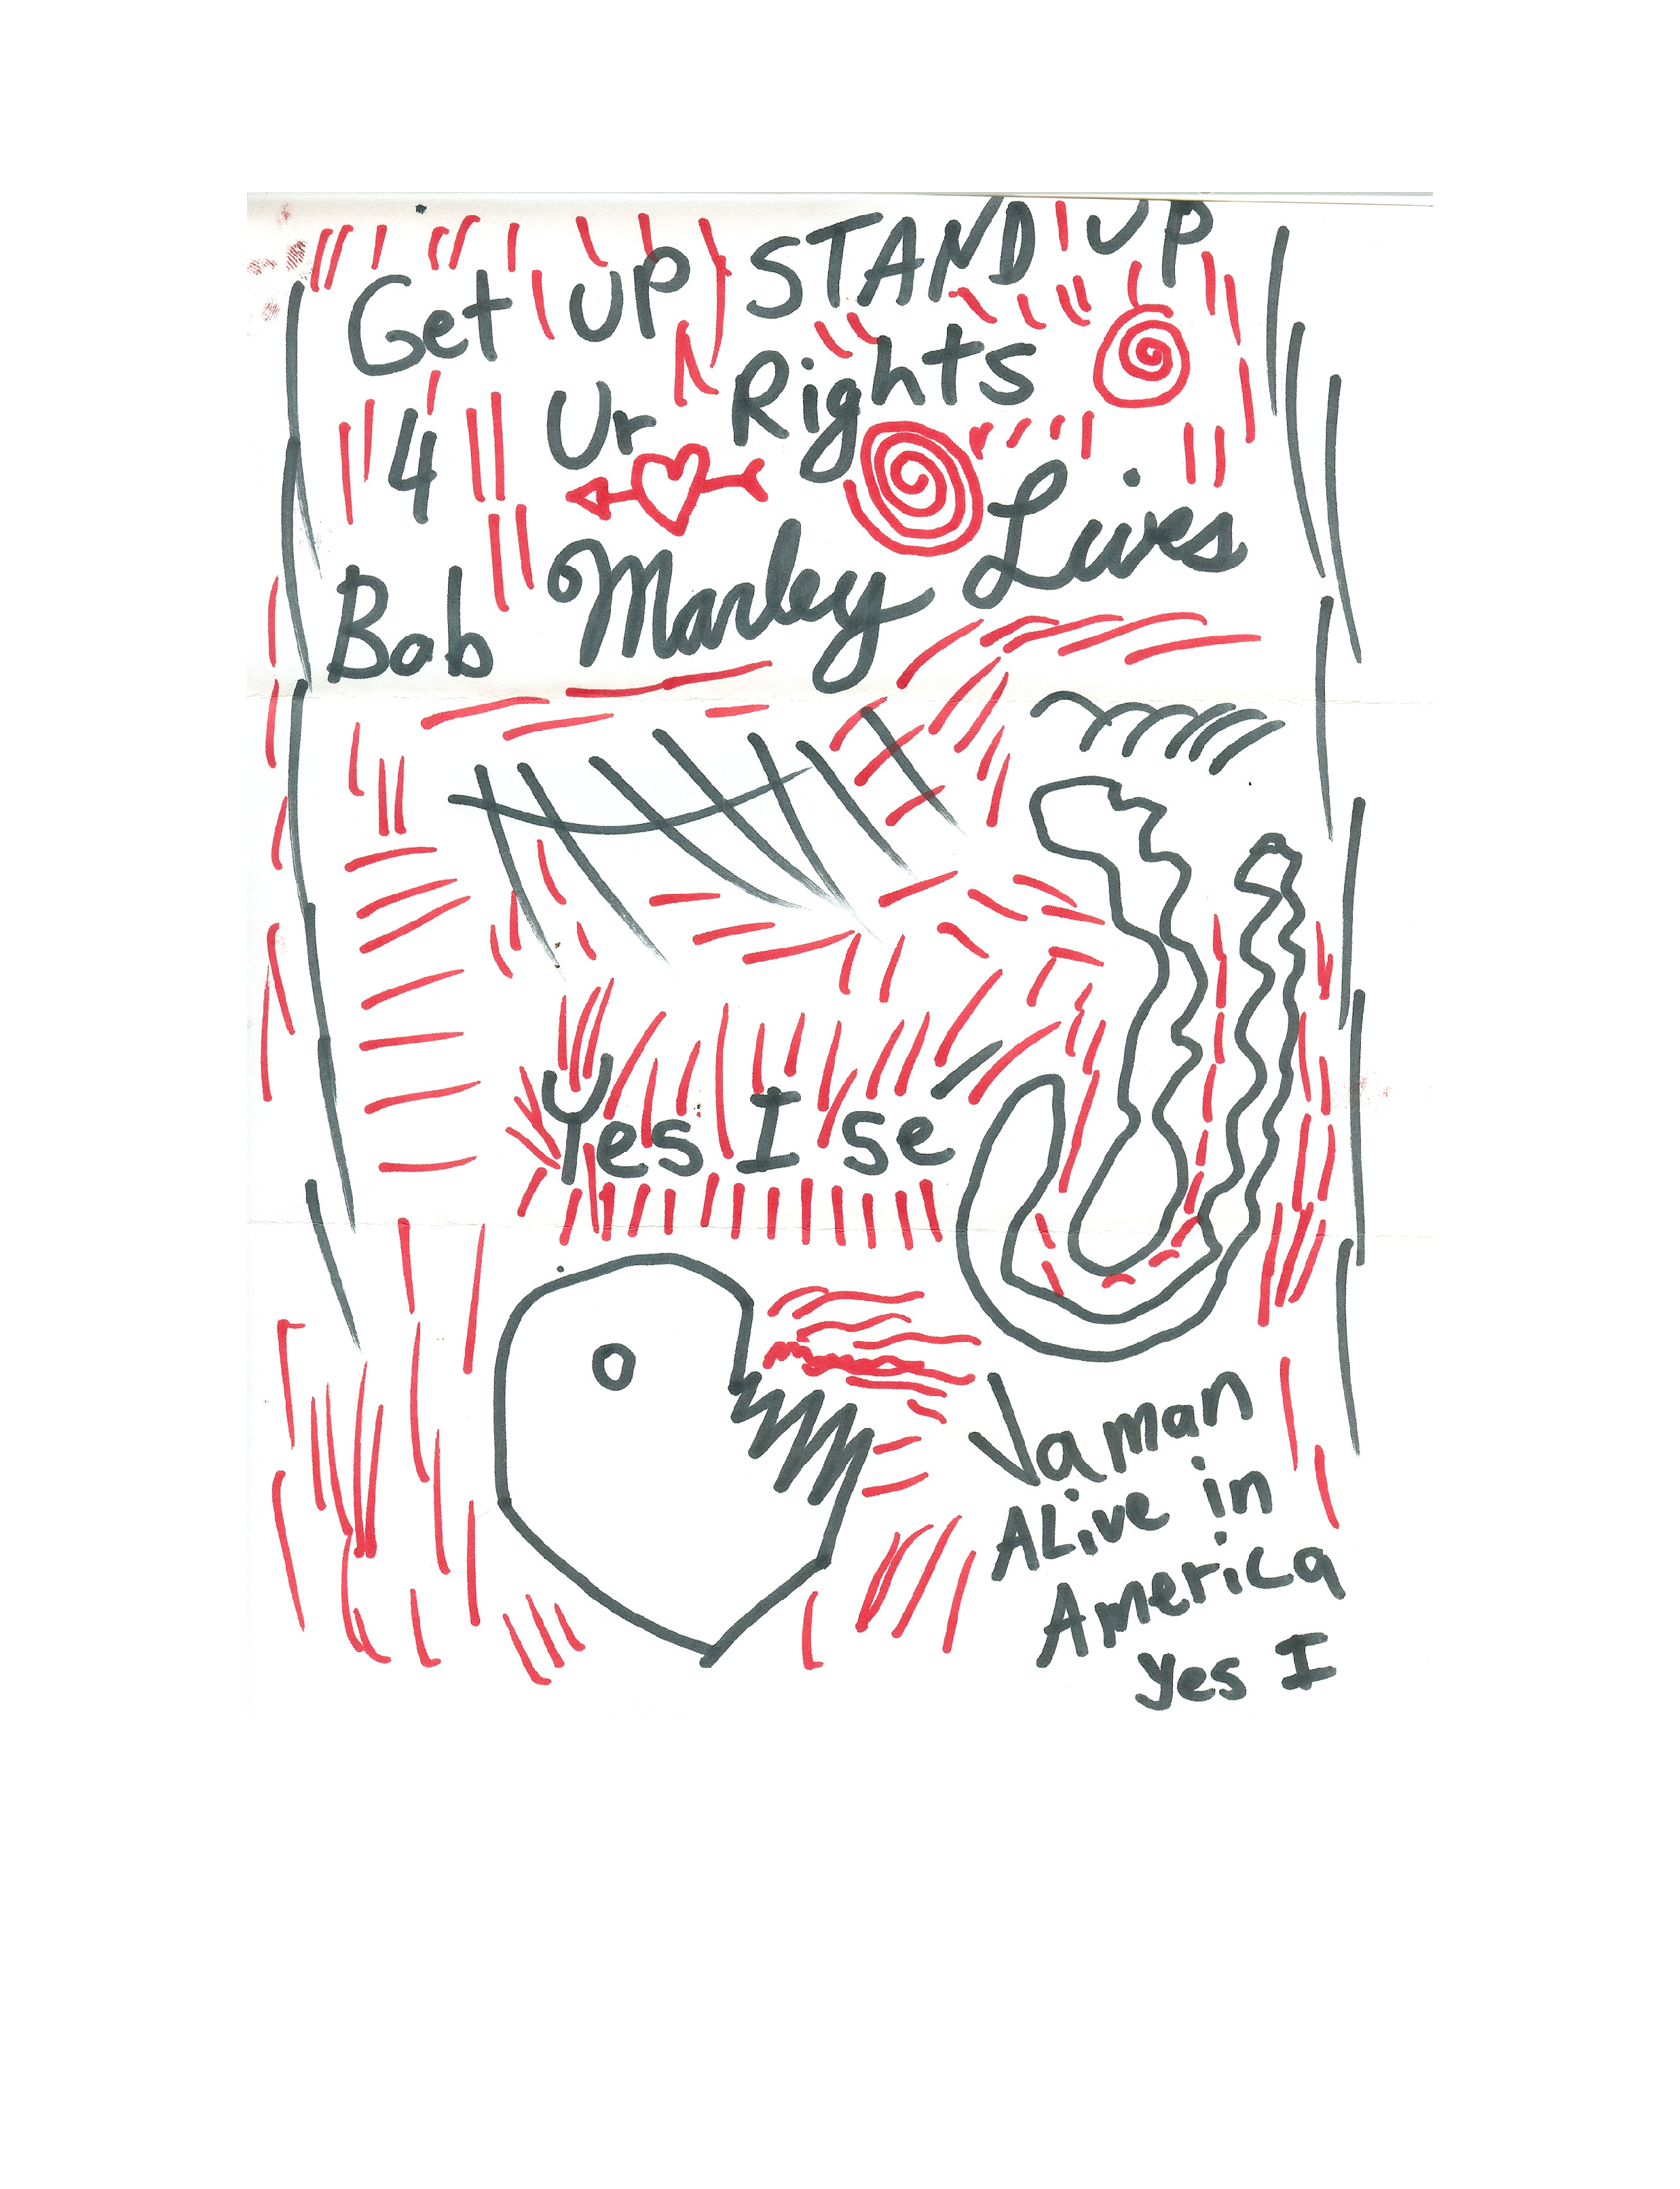 Get UP STAND UP
4 Ur Rights
Bob Marley Lives
Yes I se
Ya man
ALive in
America
yes I